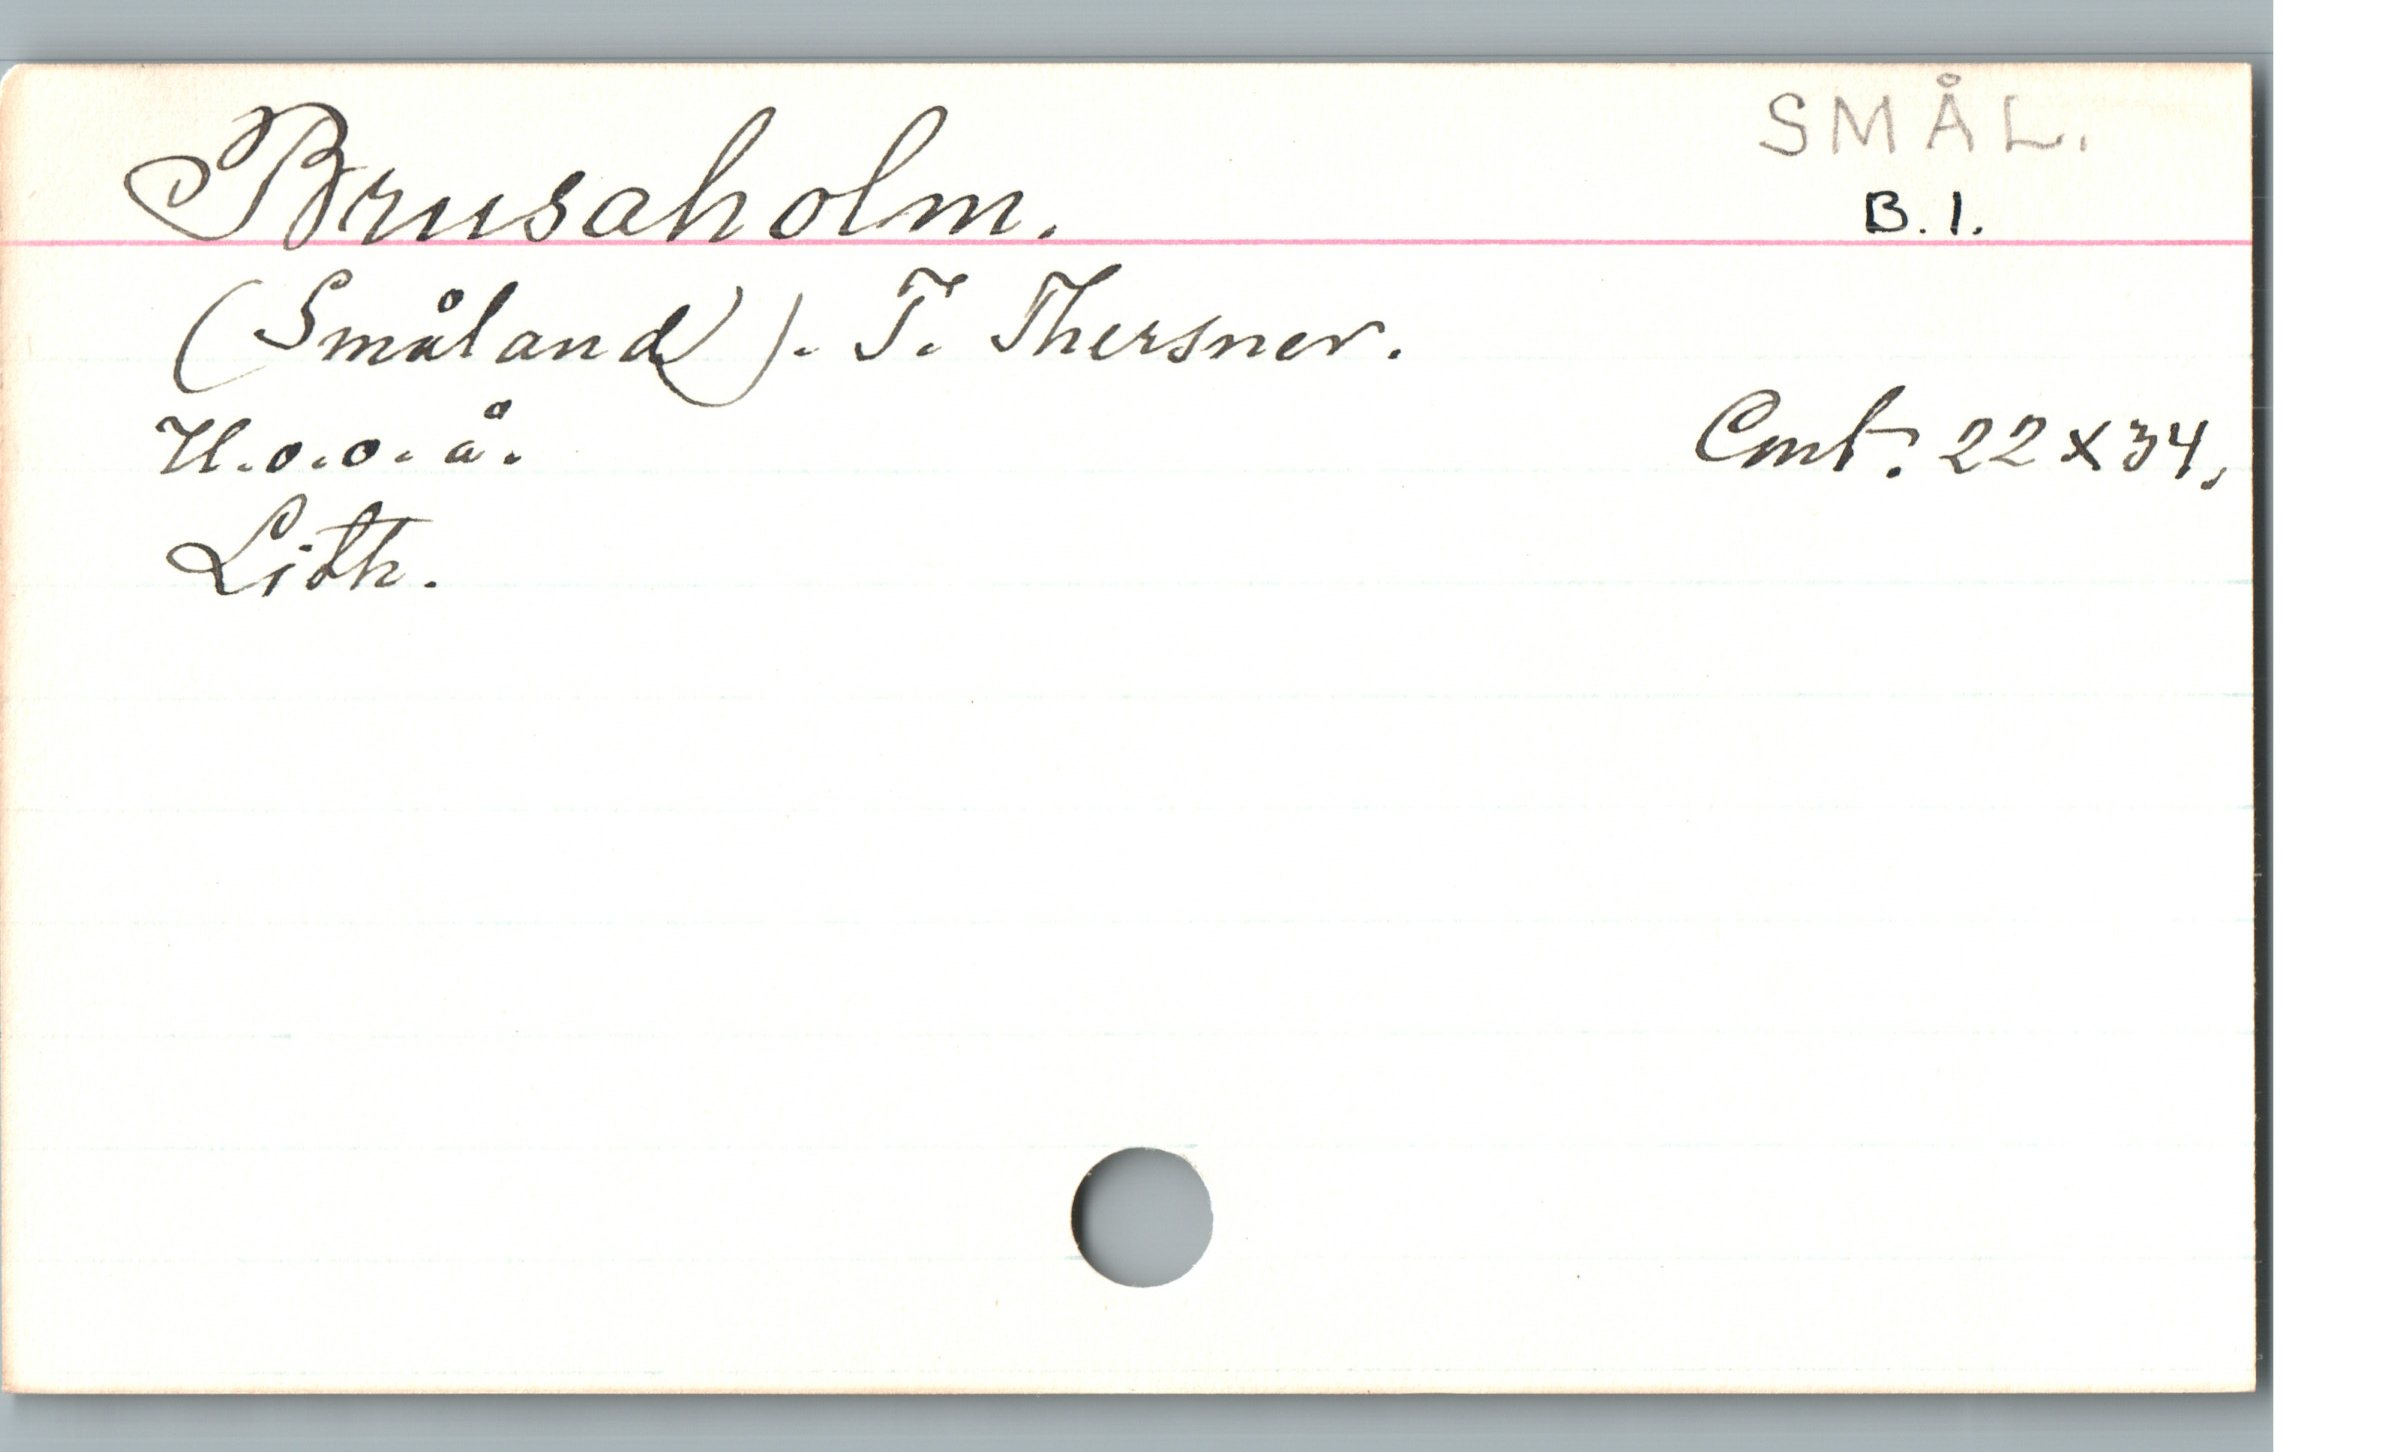 SMÅL.
Brusaholm.
B. 1.
(Småland). T. Thersner.
U.o.o.å.
Cmt. 22x34.
Lith.